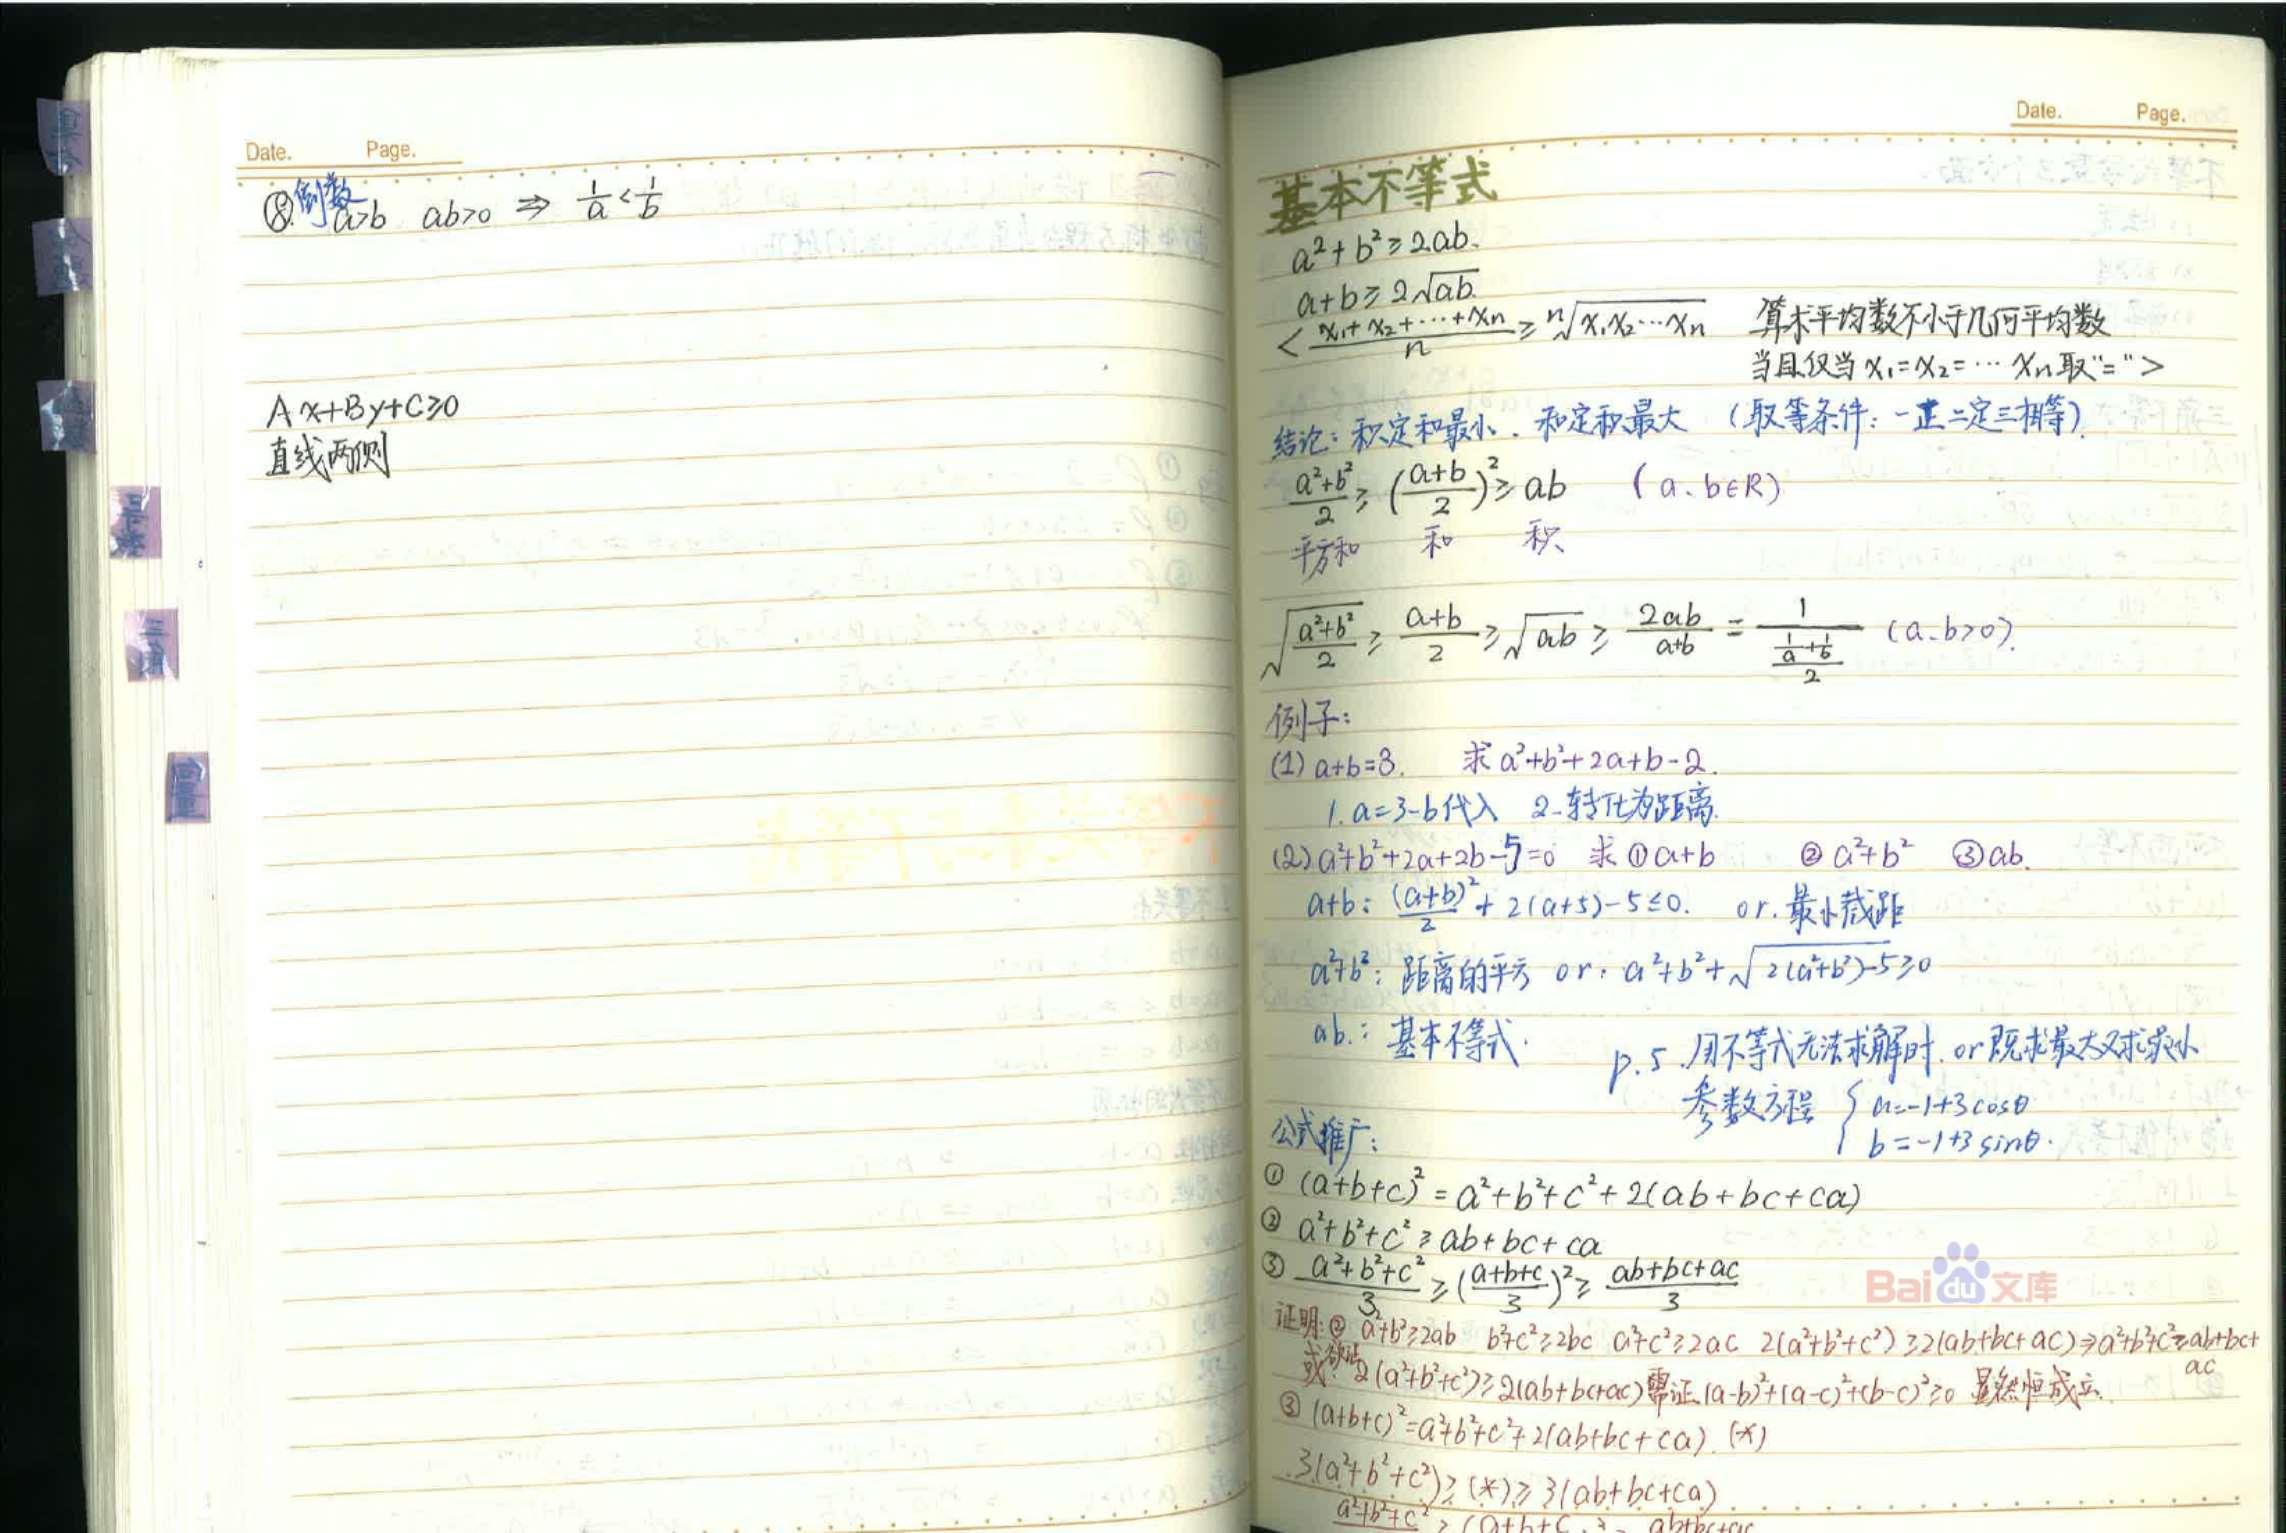 Date. Page.
⑧. 倒数 a>b ab>0 ⇒ 1/a < 1/b
Ax+By+C≥0
直线两侧
Date. Page.
基本不等式
a²+b²≥2ab.
a+b≥2√ab.
< (x₁+x₂+···+xn)/n ≥ ⁿ√(x₁x₂···xn) 算术平均数不小于几何平均数
当且仅当 x₁=x₂=··· xn取"=" >
结论: 积定和最小. 和定积最大 (取等条件: 一正二定三相等).
(a²+b²)/2 ≥ ((a+b)/2)² ≥ ab (a、b∈R)
平方和 和 积
√((a²+b²)/2) ≥ (a+b)/2 ≥ √ab ≥ 2ab/(a+b) = 1/((1/a+1/b)/2) (a、b>0).
例子:
(1) a+b=3. 求 a²+b²+2a+b-2.
1. a=3-b代入 2. 转化为距离.
(2) a²+b²+2a+2b-5=0 求 ①a+b ② a²+b² ③ab.
a+b: (a+b)²/2 + 2(a+5)-5≤0. or. 最小截距
a²+b²: 距离的平方 or. a²+b²+√(2(a²+b²)-5)≥0
ab.: 基本不等式.
p.5. 用不等式无法求解时. or 既求最大又求最小
参数方程 { a=-1+3cosθ
b=-1+3sinθ.
公式推广:
① (a+b+c)²=a²+b²+c²+2(ab+bc+ca)
② a²+b²+c²≥ab+bc+ca
③ (a²+b²+c²)/3 ≥ ((a+b+c)/3)² ≥ (ab+bc+ac)/3
Bai du 文库
证明: ② a²+b²≥2ab b²+c²≥2bc a²+c²≥2ac 2(a²+b²+c²)≥2(ab+bc+ac)⇒a²+b²+c²≥ab+bc+
ac
或: 欲证 2(a²+b²+c²)≥2(ab+bc+ac) 需证 (a-b)²+(a-c)²+(b-c)²≥0 显然恒成立.
③ (a+b+c)²=a²+b²+c²+2(ab+bc+ca). (*)
3(a²+b²+c²)≥(*)≥3(ab+bc+ca)